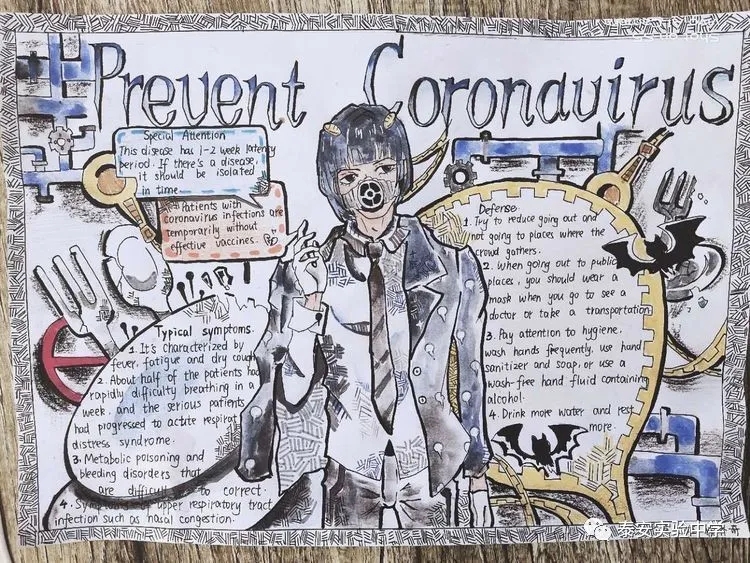 Prevent Coronavirus
Special Attention
This disease has 1-2 week latency
period. If there's a disease,
it should be isolated
in time
Patients with
coronavirus infections are
temporarily without
effective vaccines.
Typical symptoms
1. It's characterized by
fever, fatigue and dry cough
2. About half of the patients had
rapidly difficulty breathing in a
week, and the serious patients
had progressed to acute respirat
distress syndrome.
3. Metabolic poisoning and
bleeding disorders that
are difficult to correct.
4. Symptoms of upper respiratory tract
infection such as nasal congestion.
Defense
1. Try to reduce going out and
not going to places where the
crowd gathers.
2. When going out to public
places, you should wear a
mask when you go to see a
doctor or take a transportation
3. Pay attention to hygiene,
wash hands frequently, use hand
sanitizer and soap, or use a
wash-free hand fluid containing
alcohol.
4. Drink more water and rest
more.
泰安实验中学